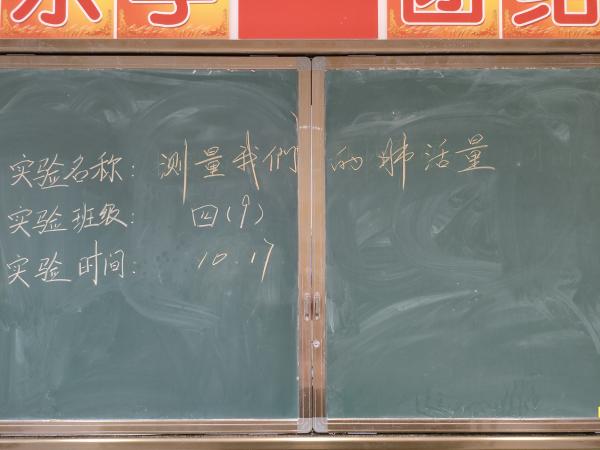 乐学 团结
实验名称: 测量我們的肺活量
实验班级: 四(9)
实验时间: 10.17